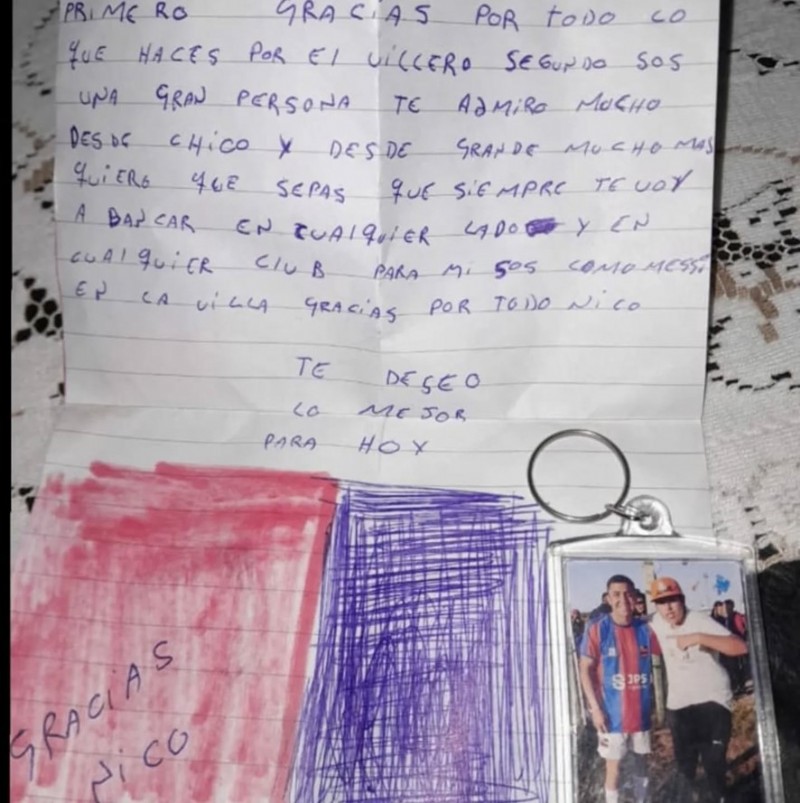 PRIMERO GRACIAS POR TODO LO
QUE HACES POR EL VILLERO SEGUNDO SOS
UNA GRAN PERSONA TE ADMIRO MUCHO
DESDE CHICO Y DESDE GRANDE MUCHO MAS
QUIERO QUE SEPAS QUE SIEMPRE TE VOY
A BANCAR EN CUALQUIER LADO Y EN
CUALQUIER CLUB PARA MI SOS COMO MESSI
EN LA VILLA GRACIAS POR TODO NICO
TE DESEO
LO MEJOR
PARA HOY
GRACIAS
NICO
JPS